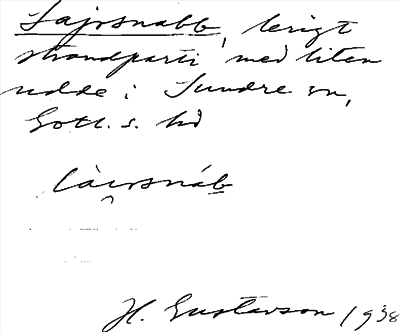 Lajvsnabb, lerigt
strandparti med liten
udde i Sundre sn,
Gotl. s. hd
H. Gustavson 1938